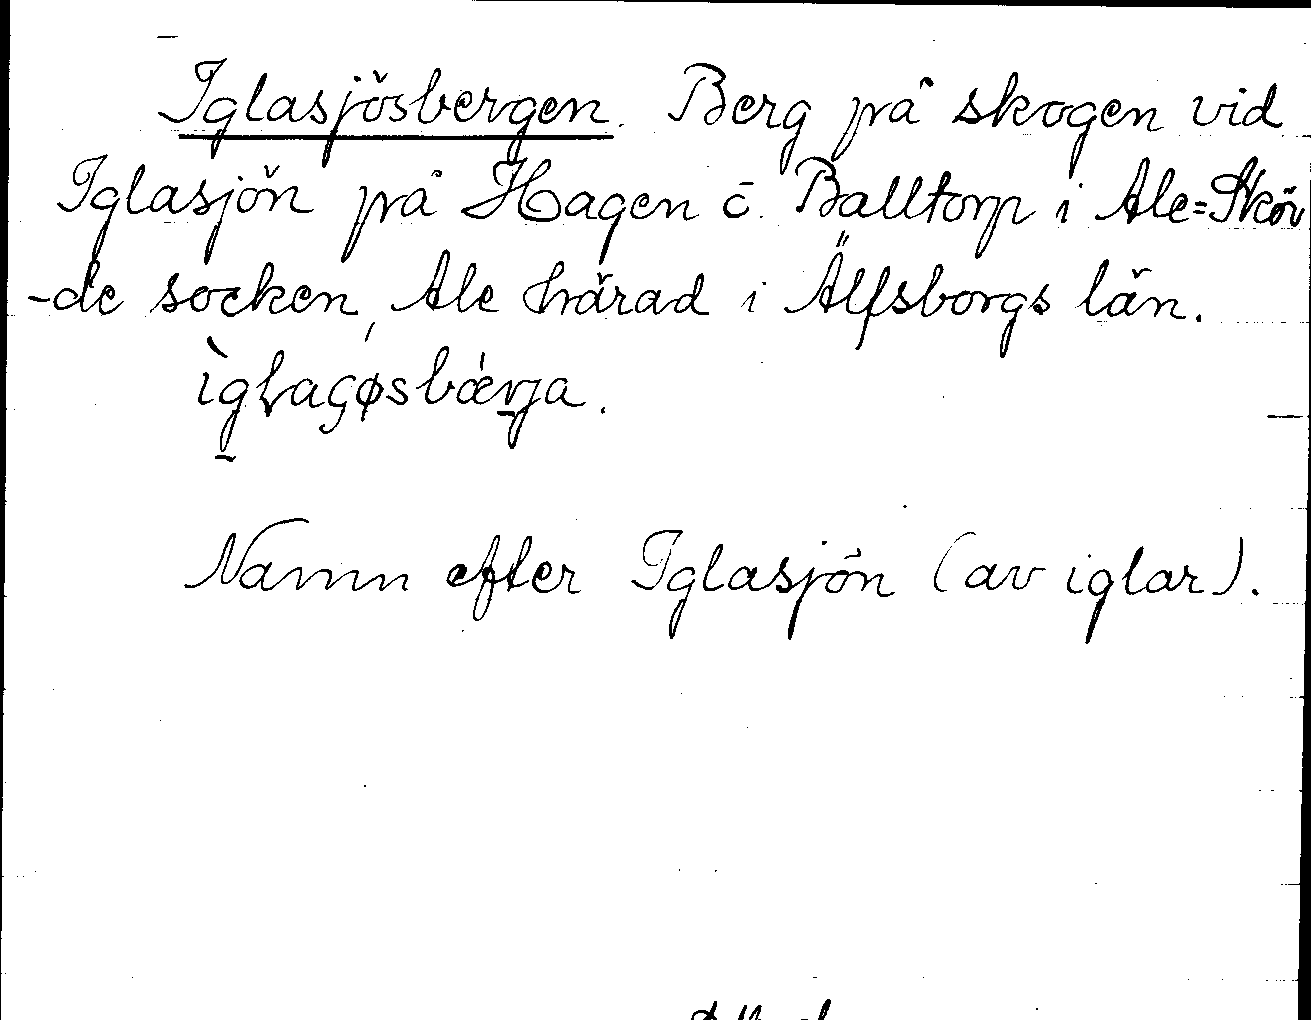 Iglasjösbergen. Berg på skogen vid
Iglasjön på Hagen o. Balltorp i Ale=Sköv
-de socken, Ale härad i Älfsborgs län.
Namn efter Iglasjön (av iglar).